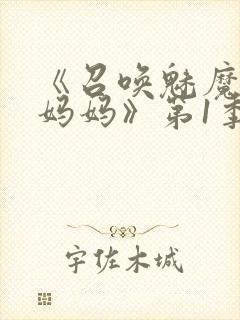 《召唤魅魔
妈妈》第1季
宇佐木城